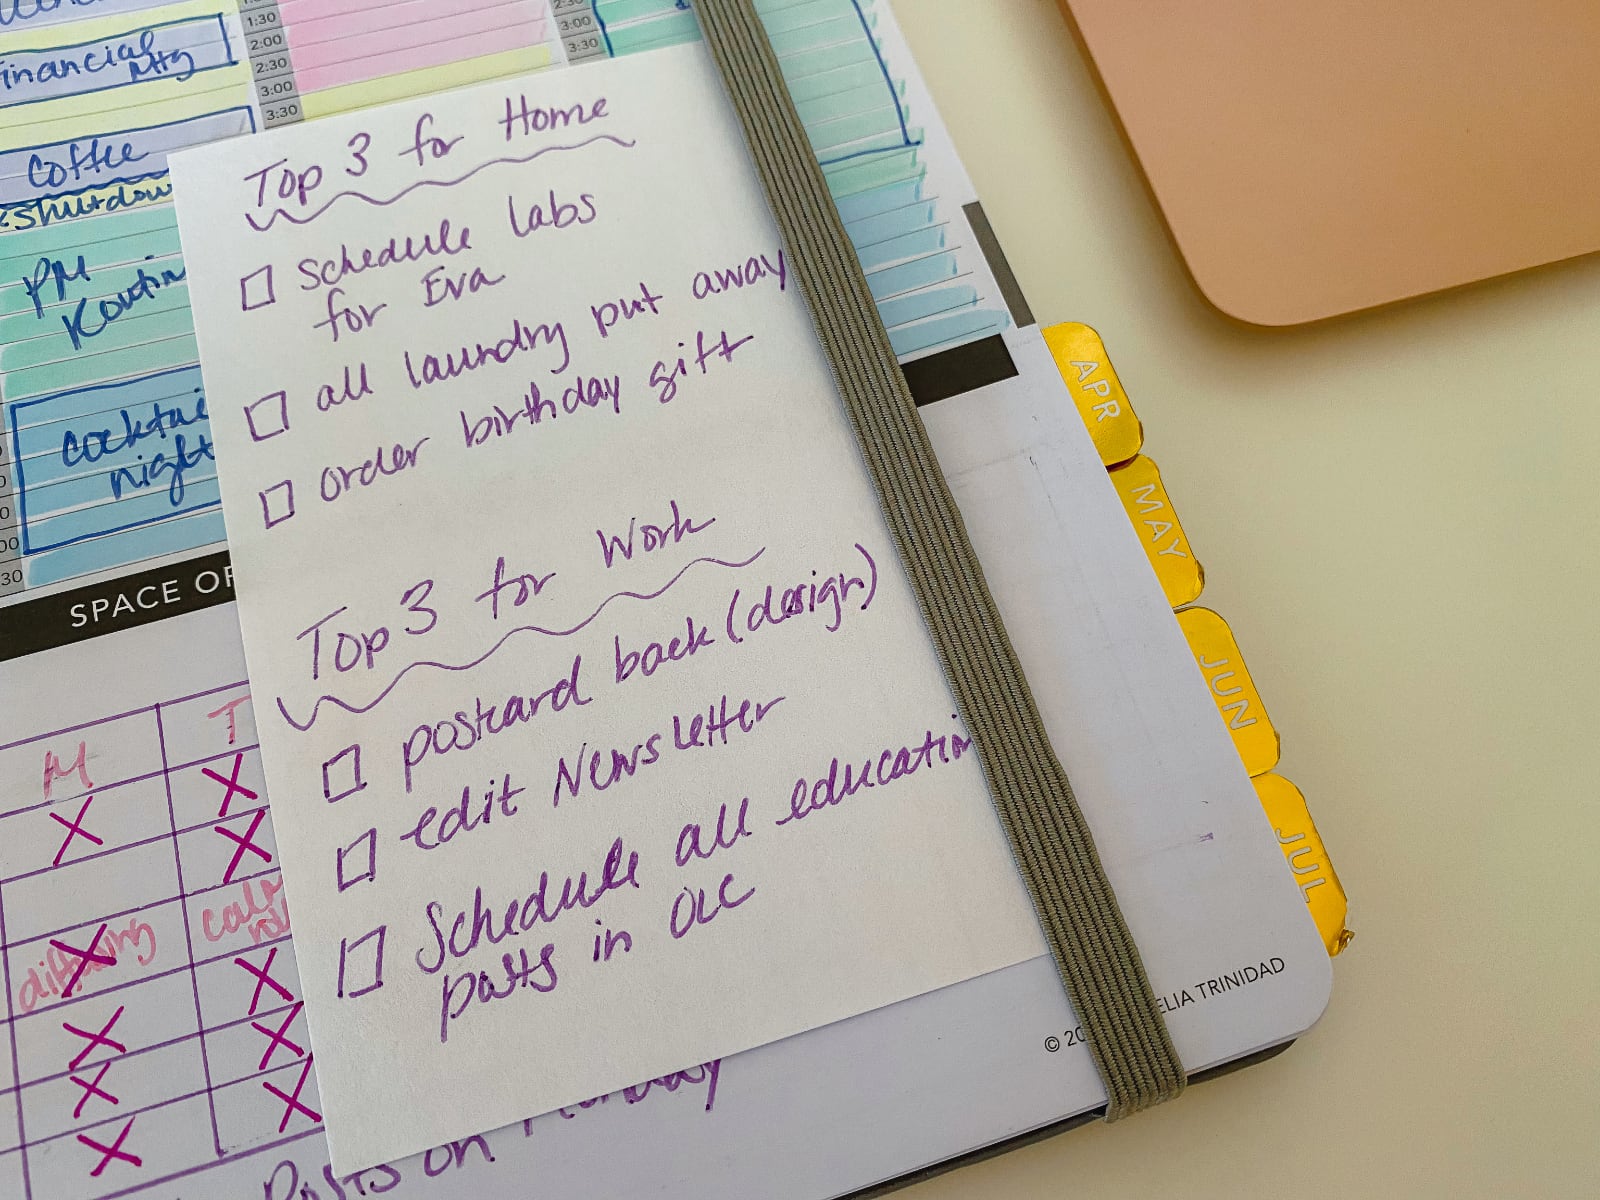 1:30
2:00
2:30
3:00
3:30
2:30
3:00
3:30
inancial
Mtg
Coffee
shutdow
PM
Routin
cocktai
night
00
30
SPACE OF
Top 3 for Home
Schedule labs
for Eva
all laundry put away
order birthday gift
Top 3 for Work
postcard back (design)
edit Newsletter
Schedule all education
posts in OLC
M
T
Posts on Monday
APR
MAY
JUN
JUL
© 20
ELIA TRINIDAD